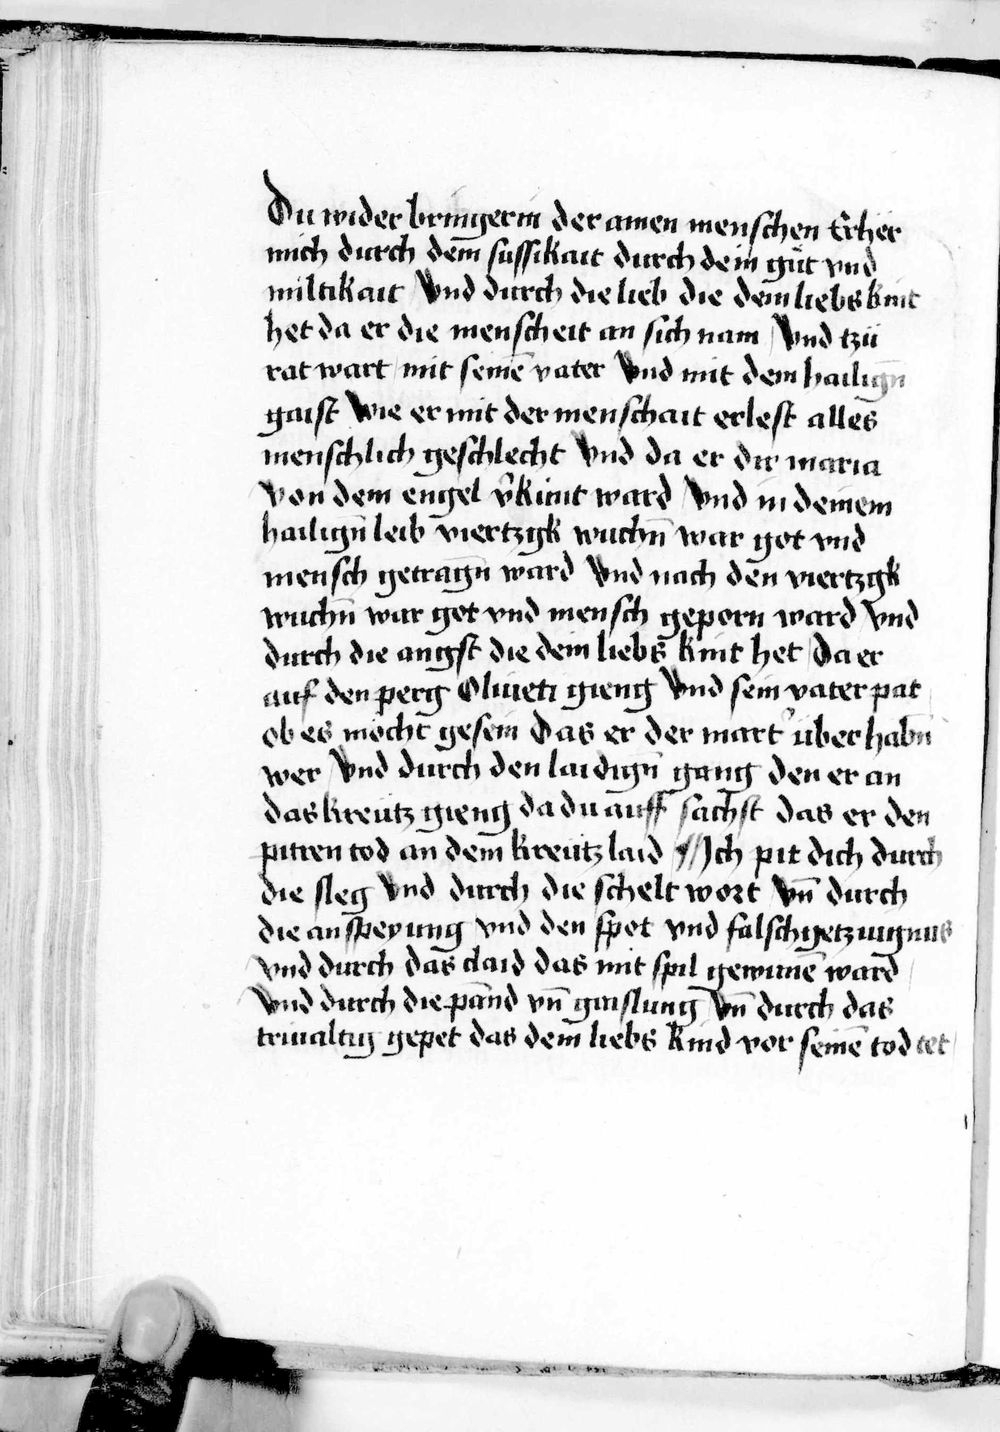 Du wider bringerin der armen menschen Erher
mich durch dein sussikait durch dein gůt vnd
miltikait Vnd durch die lieb die dein liebs kint
het da er die menscheit an sich nam / Vnd tzü
rat wart / mit seinē vater Vnd mit dem hailigñ
gaist Wie er mit der menschait erlest alles
menschlich geschlecht Vnd da er dir maria
von dem engel v̾künt ward / Vnd in deinem
hailigñ leib viertzgk wuchñ war got vnd
mensch getragñ ward Vnd nach den viertzgk
wuchñ war got vnd mensch geporn ward / Vnd
durch die angst die dein liebs kint het / Da er
auf den perg Oliueti gieng Vnd sein vater pat /
ob es möcht gesein Das er der mart̾ überhabñ
wer / Vnd durch den laidigñ gang den er an
das kreütz gieng da du auff sachst das er den
pittren tod an dem kreütz laid // Ich pit dich durch
die sleg Vnd durch die schelt wort Vñ durch
die anspeyung vnd den spot vnd falsch getzüugnus
vnd durch das claid das mit spil gewunnē ward /
Vnd durch die pānd vñ gaislung / Vñ durch das
triualtig gepet das dein liebs kind vor seinē tod tet /